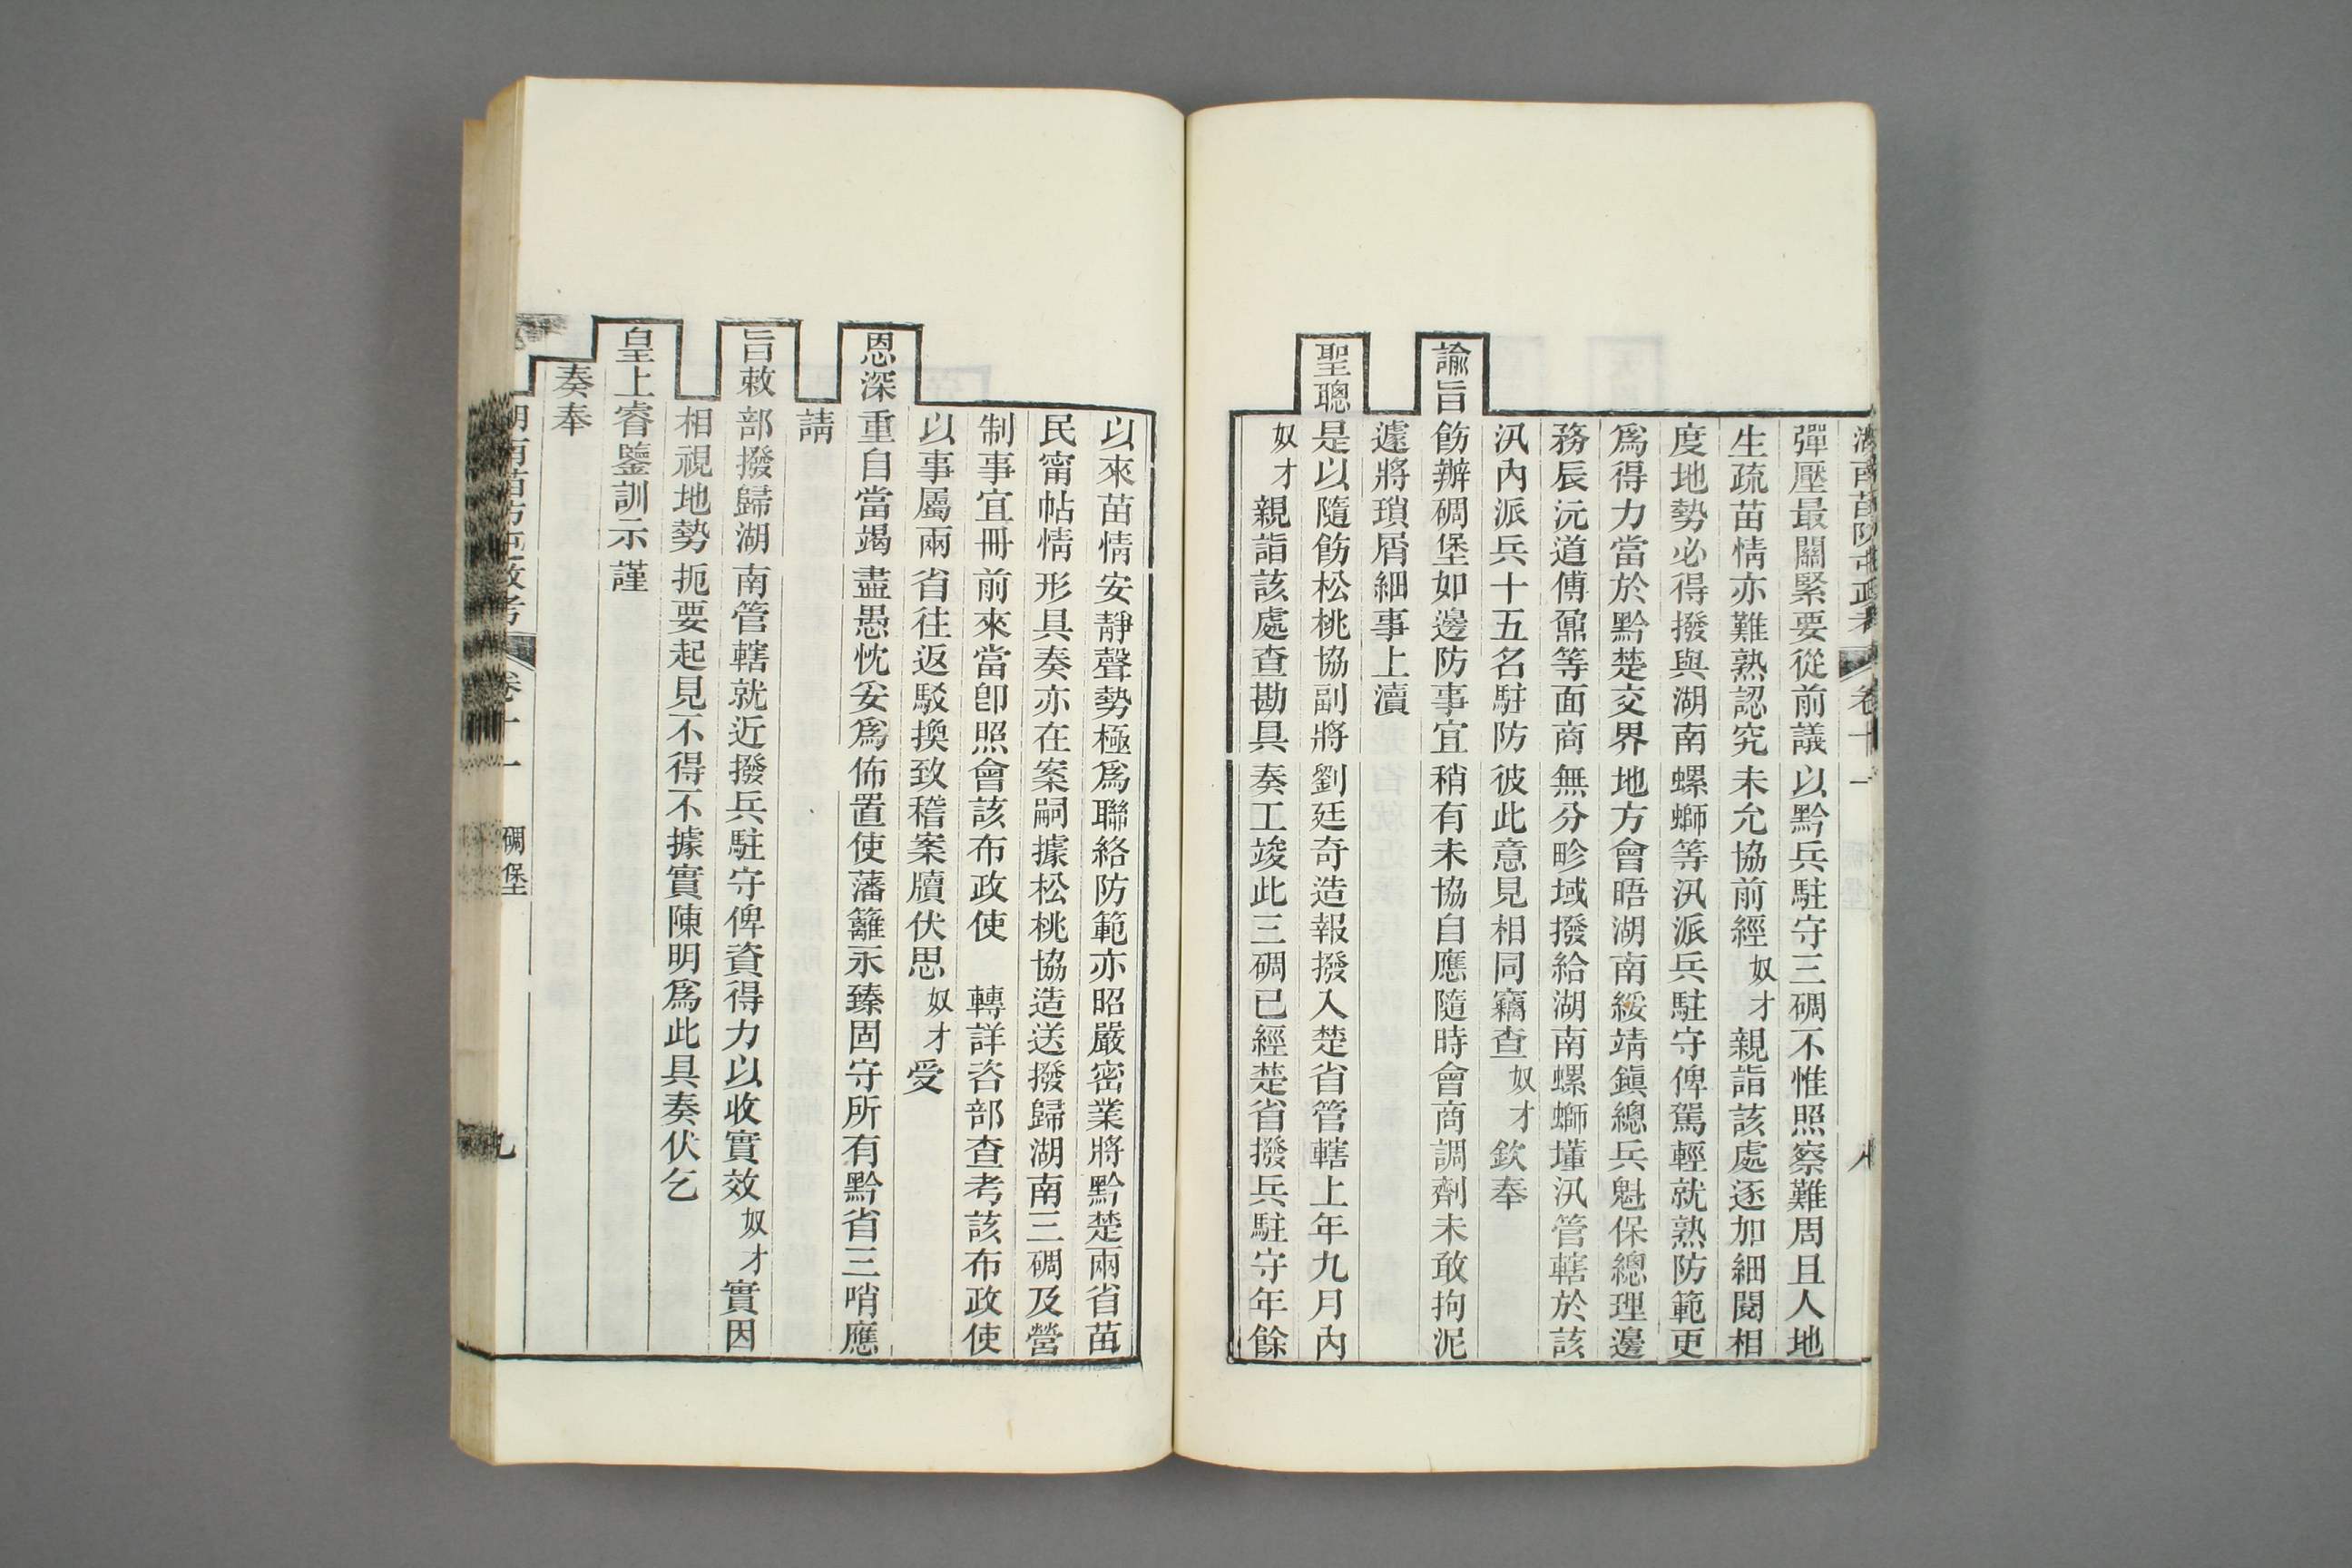 湖南苗防屯政考 卷十一 碉堡 八
彈壓最關緊要從前議以黔兵駐守三碉不惟照察難周且人地
生疏苗情亦難熟認究未允協前經奴才親詣該處逐加細閱相
度地勢必得撥與湖南螺螄等汛派兵駐守俾駕輕就熟防範更
爲得力當於黔楚交界地方會晤湖南綏靖鎭總兵魁保總理邊
務辰沅道傅鼐等面商無分畛域撥給湖南螺螄墐汛管轄於該
汛內派兵十五名駐防彼此意見相同竊查奴才欽奉
諭旨飭辦碉堡如邊防事宜稍有未協自應隨時會商調劑未敢拘泥
遽將瑣屑細事上瀆
聖聰是以隨飭松桃協副將劉廷奇造報撥入楚省管轄上年九月內
奴才親詣該處查勘具奏工竣此三碉已經楚省撥兵駐守年餘
以來苗情安靜聲勢極爲聯絡防範亦昭嚴密業將黔楚兩省苗
民甯帖情形具奏亦在案嗣據松桃協造送撥歸湖南三碉及營
制事宜冊前來當卽照會該布政使轉詳咨部查考該布政使
以事屬兩省往返駁換致稽案牘伏思奴才受
恩深重自當竭盡愚忱妥爲佈置使藩籬永臻固守所有黔省三哨應
請
旨敕部撥歸湖南管轄就近撥兵駐守俾資得力以收實效奴才實因
相視地勢扼要起見不得不據實陳明爲此具奏伏乞
皇上睿鑒訓示謹
奏奉
湖南苗防屯政考 卷十一 碉堡 九